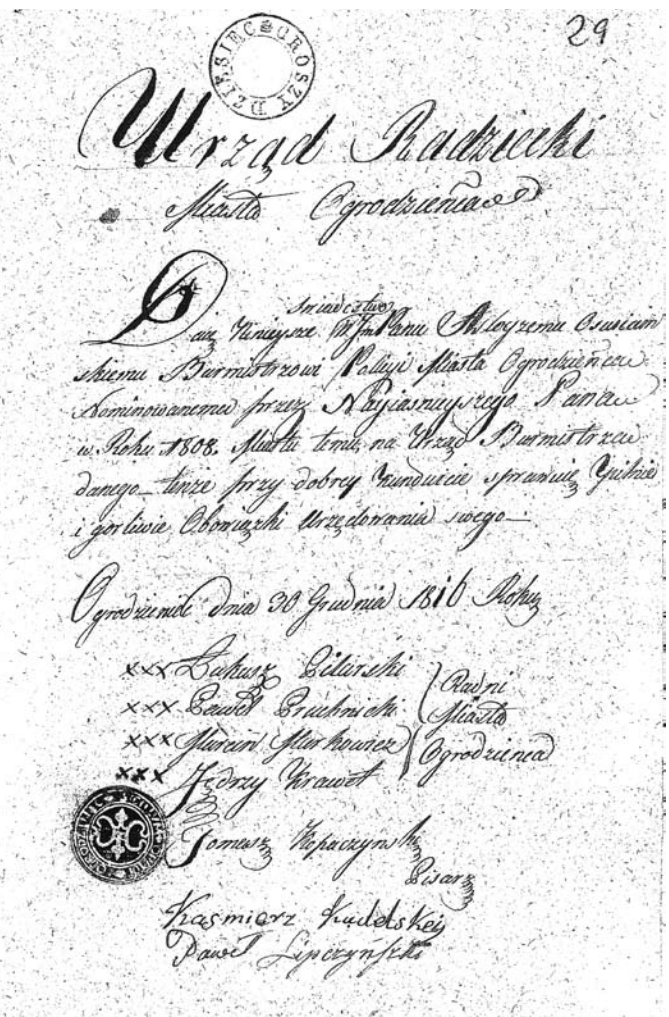 29
DZIESIEC GROSZY
Urząd Radziecki
Miasta Ogrodzienca
Świadectwo
Daię Ninieysze W JmPanu
skiemu Burmistrzowi Policyi Miasta Ogrodzieńca
Nominowanemu przez Nayiasnieyszego Pana
w Roku 1808. Miastu temu na Urząd Burmistrza
danego tenże przy dobrey Kunduicie sprawuię Pilnie
i gorliwie Obowiązki Urzędowania swego
Ogrodzieniec dnia 30 Grudnia 1816 Roku
xxx Łukasz Pilarski
xxx Paweł Pruchnicki
xxx Marcin Markowicz
xxx Jędrzy Kraweł
Radni
Miasta
Ogrodzienca
Tomasz Kopaczynski
Pisarz
Kaźmierz
Paweł Lipczyński